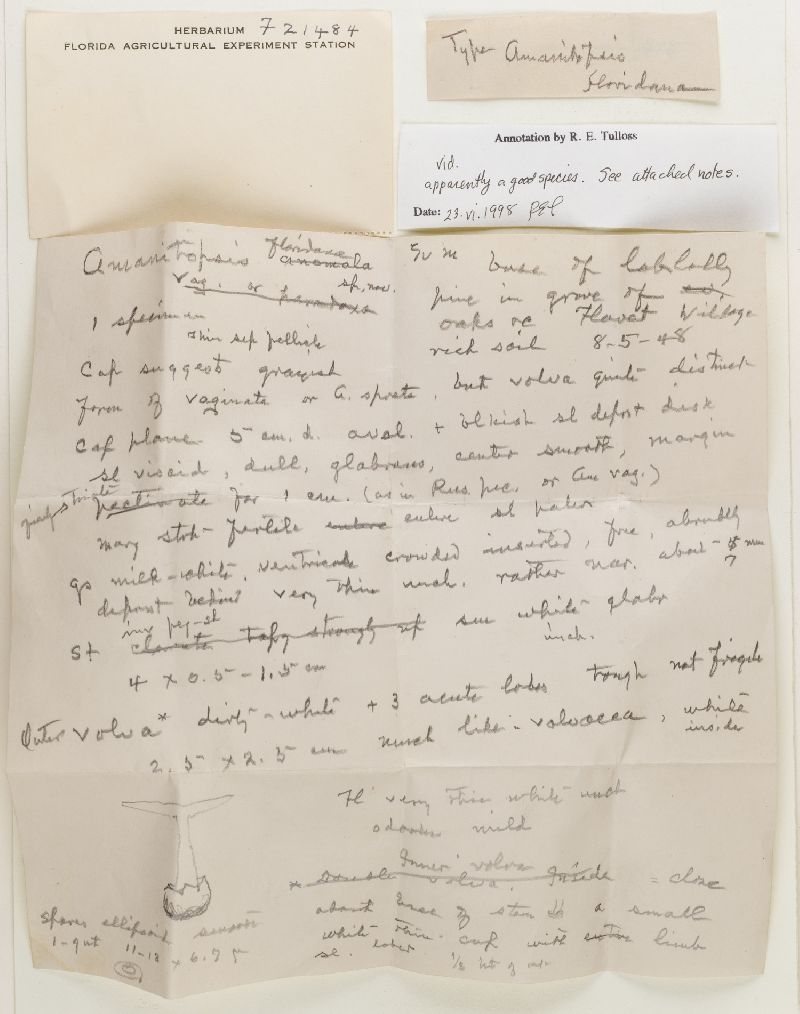 HERBARIUM 721484
FLORIDA AGRICULTURAL EXPERIMENT STATION
Type Amanitopsis
Floridana
Annotation by R. E. Tulloss
vid.
apparently a good species. See attached notes.
Date: 23.vi.1998
Amanitopsis Floridana anomala
sp. nov.
Vag. or
1 specimen
thin sep pellicle
Cap suggest grayish
form of vaginata or A. spreta, but volva quite distinct
Cap plane 5 cm. d. avel. + blkish sl depost disk
sl viscid, dull, glabrous, center smooth, margin
striate
for 1 cm. (as in Rus. pec. or Am vag.)
many sterile entire entire sl paler
gs milk-white, ventricose crowded inserted, free, abruptly
behind very thin unch. rather nar. about 5 mm
7
St up sm white glabr
unch.
4 x 0.5-1.5 cm
Outer volva* dirty-white + 3 acute lobes tough not fragile
2.5 x 2.5 cm much like volvacea, white
inside
sum base of loblolly
pine in grove of
oaks nr Flavet Village
rich soil 8-5-48
Fl very thin white unch
odorless mild
Inner volva
* Double volva. Inside = close
about base of stem is a small
white thin cup with entire limb
sl. lower 1/3 ht of
Spores ellipsoid smooth
1-gut 11-12 x 6.7 µ